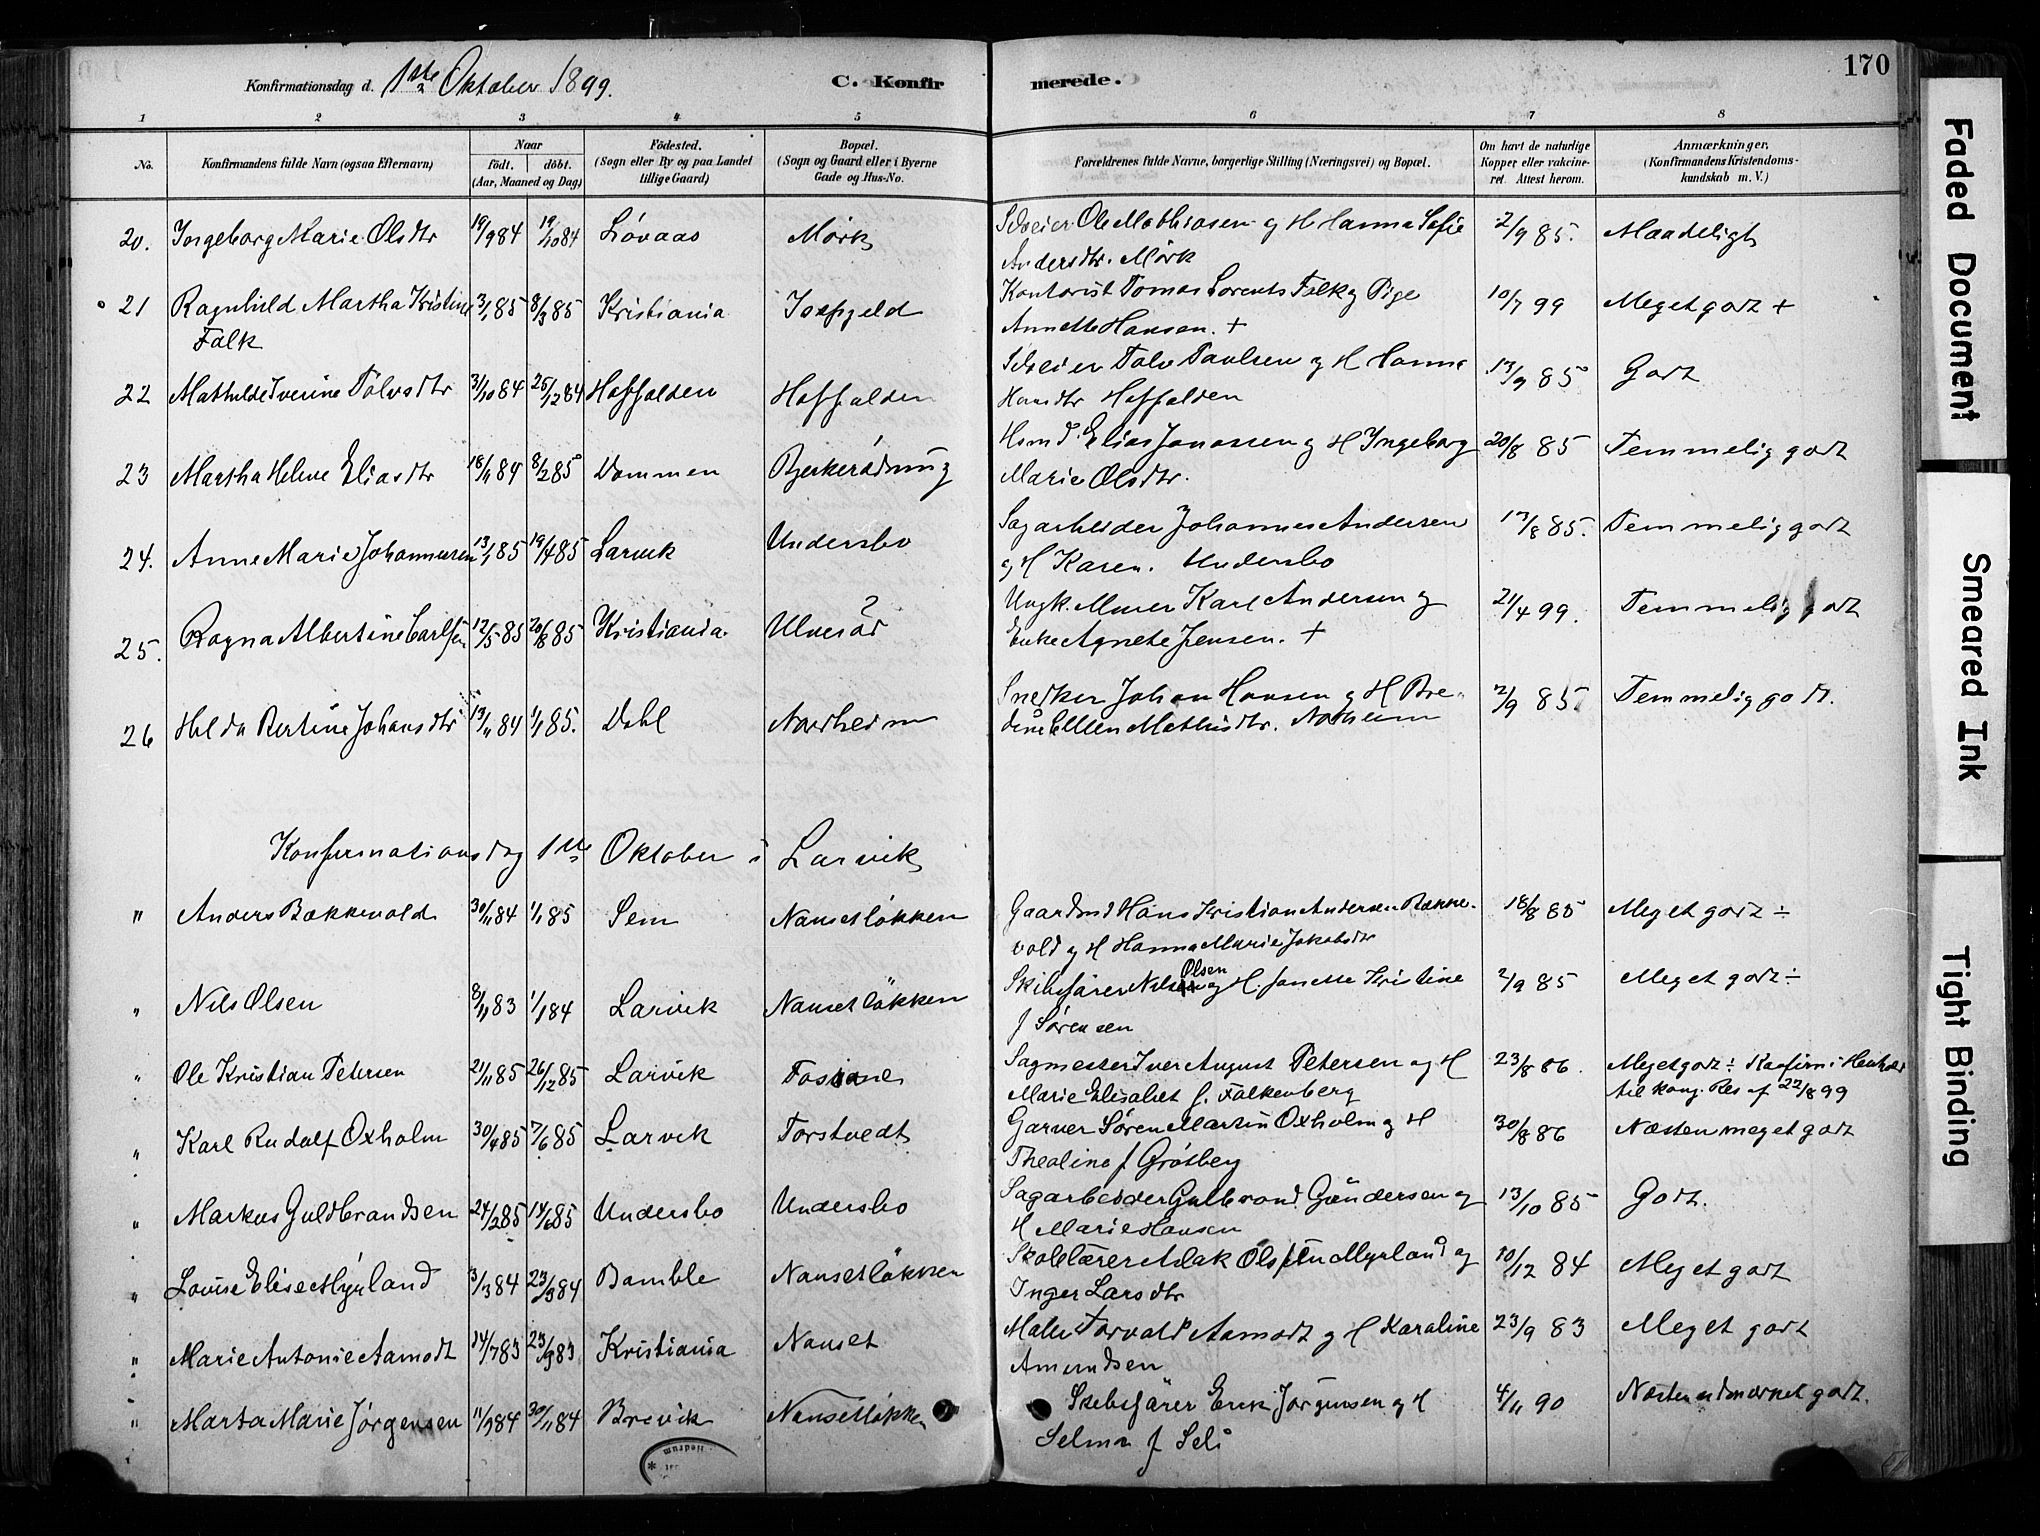 170
Konfirmationsdag d. 1ste Oktober 1899. C. Konfirmerede.
1 2 3 4 5 6 7 8
No. Konfirmandens fulde Navn (ogsaa Efternavn) Naar født. døbt. (Aar, Maaned og Dag) Fødested. (Sogn eller By og paa Landet tillige Gaard) Bopæl. (Sogn og Gaard eller i Byerne Gade og Hus-No. Forældrenes fulde Navne, borgerlige Stilling (Næringsvei) og Bopæl. Om havt de naturlige Kopper eller vakcineret. Attest herom. Anmærkninger, (Konfirmandens Kristendomskundskab m. V.)
20. Ingeborg Marie Olsdtr 19/9 84 19/10 84 Løvaas Mørk Selveier Ole Mathiasen og H Hanna Sofie 2/9 85. Maadeligt
Andersdtr. Mørk
21 Ragnhild Martha Kristine 3/1 85 8/3 85 Kristiania Kontorist Tomas Lorents Falk og Pige 10/7 99 Meget godt +
Falk Annette Hansen. +
22 Mathilde Iverine Tolvsdtr 31/10 84 26/12 84 Haffalden Haffalden Selveier Tolv Paulsen og H Hanna 13/9 85 Godt
Hansdtr Haffalden
23 Martha Helene Eliasdtr 18/11 84 8/2 85 Dammen Bjerkerødning Hsmd Elias Jonassen og H Ingeborg 20/8 85 Temmelig godt
Marie Olsdtr.
24. Anne Marie Johannesen 13/1 85 19/4 85 Larvik Undersbo Sagarbeider Johannes Andersen 17/8 85. Temmelig godt
og H Karen. Undersbo
25. Ragna Albertine Carlsen 12/5 85 20/8 85 Kristiania Ulverød Ungk. Murer Karl Andersen og 21/4 99. Temmelig godt
Enke Agnete Jensen. +
26 Hilda Bertine Johansdtr 13/11 84 1/1 85. Dahl Nordheim Snedker Johan Hansen og H Bre- 2/9 85 Temmelig godt.
dine Ellen Mathisdtr. Nordheim
Konfirmationsdag 1ste Oktober i Larvik
" Anders Bækkevold 30/11 84 1/1 85 Sem Nansetløkken Gaardmd Hans Kristian Andersen Bække- 18/8 85 Meget godt ÷
vold og H Hanna Marie Jakobsdtr
" Nils Olsen 8/11 83 1/1 84 Larvik Nansetløkken Skibsfører Nils Olsen og H. Janette Kristine 2/9 85 Meget godt ÷
f Sørensen
" Ole Kristian Petersen 21/11 85 26/12 85 Larvik Fosione Sagmester Iver August Petersen og H 23/8 86. Meget godt ÷ Konfirm i Henhold
Marie Elisabet f. Falkenberg til kong. Res af 22/8 99
" Karl Rudolf Oxholm 30/4 85 7/6 85 Larvik Torstvedt Garver Søren Martin Oxholm og H 30/8 86 Næsten meget godt
Thealine f Grøtberg
" Markus Guldbrandsen 24/2 85 14/6 85 Undersbo Undersbo Sagarbeider Gulbrand Gundersen og 13/10 85 Godt.
H Marie Hansen
" Louise Elise Myrland 3/3 84 23/3 84 Bamble Nansetløkken Skolelærer Aslak Olsen Myrland og 10/12 84 Meget godt
Inger Larsdtr
" Marie Antonie Aamodt 14/7 83 23/9 83 Kristiania Nanset Maler Torvald Aamodt og H Karoline 23/9 83 Meget godt
Amundsen
" Marta Marie Jørgensen 11/9 84 30/11 84 Brevik Nansetløkken Skibsfører Erik Jørgensen og H 4/11 90 Næsten udmærket godt.
Selma f Seli
Faded Document
Smeared Ink
Tight Binding